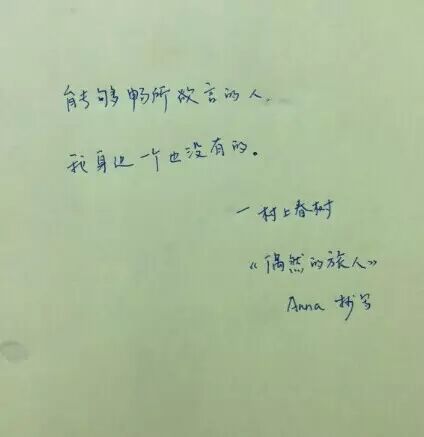 能够畅所欲言的人,
我身边一个也没有的。
一村上春树
《偶然的旅人》
Anna 抄写